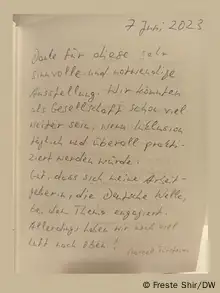 7 Juni 2023
Danke für diese sehr
sinnvolle und notwendige
Ausstellung. Wir könnten
als Gesellschaft schon viel
weiter sein, wenn Inklusion
täglich und überall prakti-
ziert werden würde.
Gut, dass sich meine Arbeit-
geberin, die Deutsche Welle,
bei dem Thema engagiert.
Allerdings haben wir noch viel
Luft nach oben!
© Freste Shir/DW